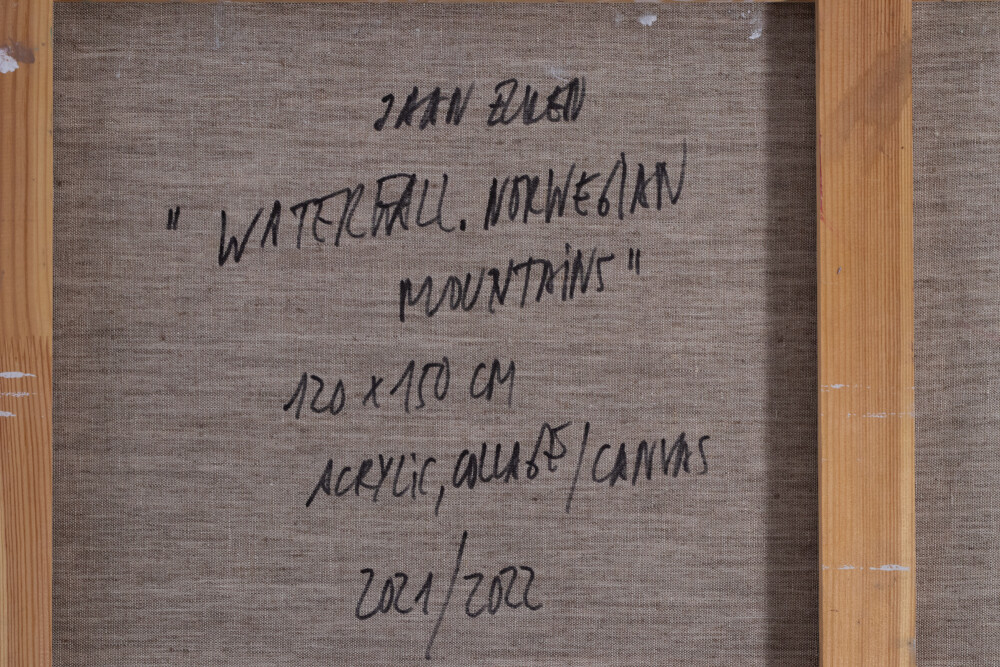 JAAN ELKEN
" WATERFALL. NORWEGIAN
MOUNTAINS "
120 x 150 CM
ACRYLiC, COLLAGE / CANVAS
2021/2022